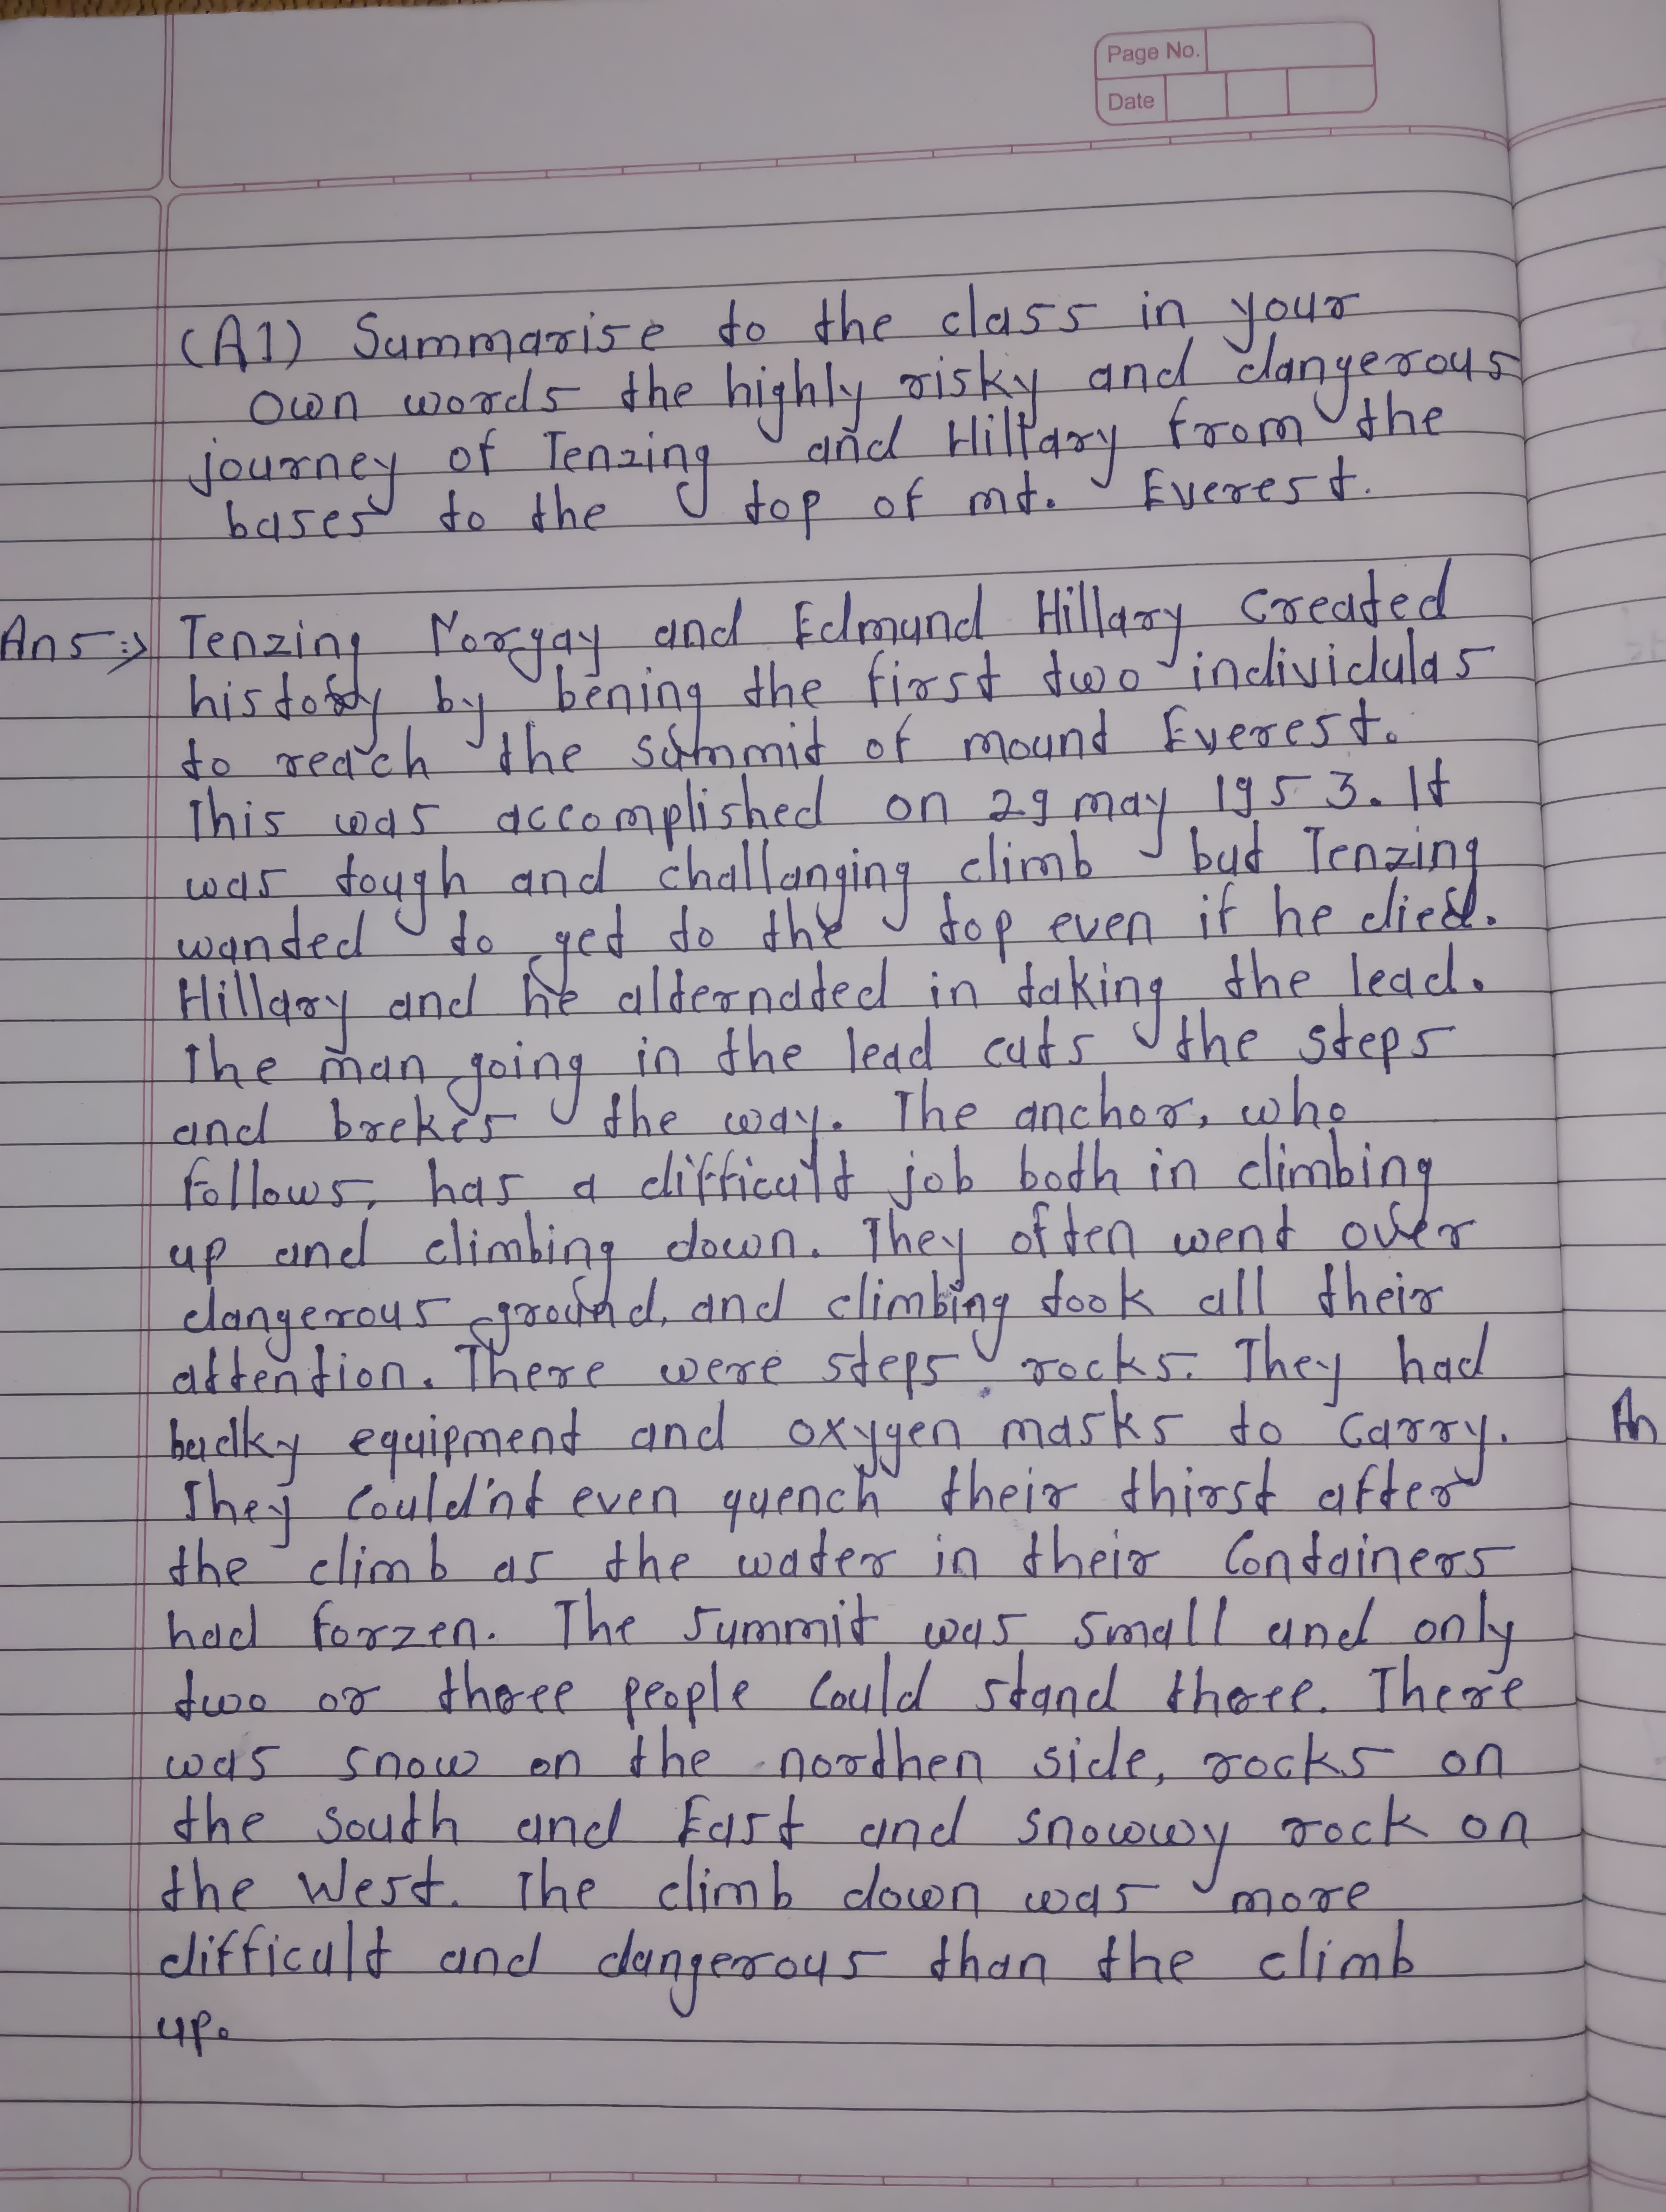 Page No.
Date
(A1) Summarise to the class in your
own words the highly risky and dangerous
journey of Tenzing and Hillary from the
bases to the top of mt. Everest.
Ans:⇒ Tenzing Norgay and Edmund Hillary created
history by bening the first two individulas
to reach the summit of mound Everest.
This was accomplished on 29 may 1953. It
was tough and challanging climb but Tenzing
wanted to get to the top even if he died.
Hillary and he alternated in taking the lead.
The man going in the lead cuts the steps
and brekes the way. The anchor, who
follows, has a difficult job both in climbing
up and climbing down. They often went over
dangerous ground, and climbing took all their
attention. There were steps rocks. They had
bulky equipment and oxygen masks to carry.
They could'nt even quench their thirst after
the climb as the water in their containers
had forzen. The summit was small and only
two or three people could stand there. There
was snow on the northen side, rocks on
the south and East and snowwy rock on
the West. The climb down was more
difficult and dangerous than the climb
up.
An